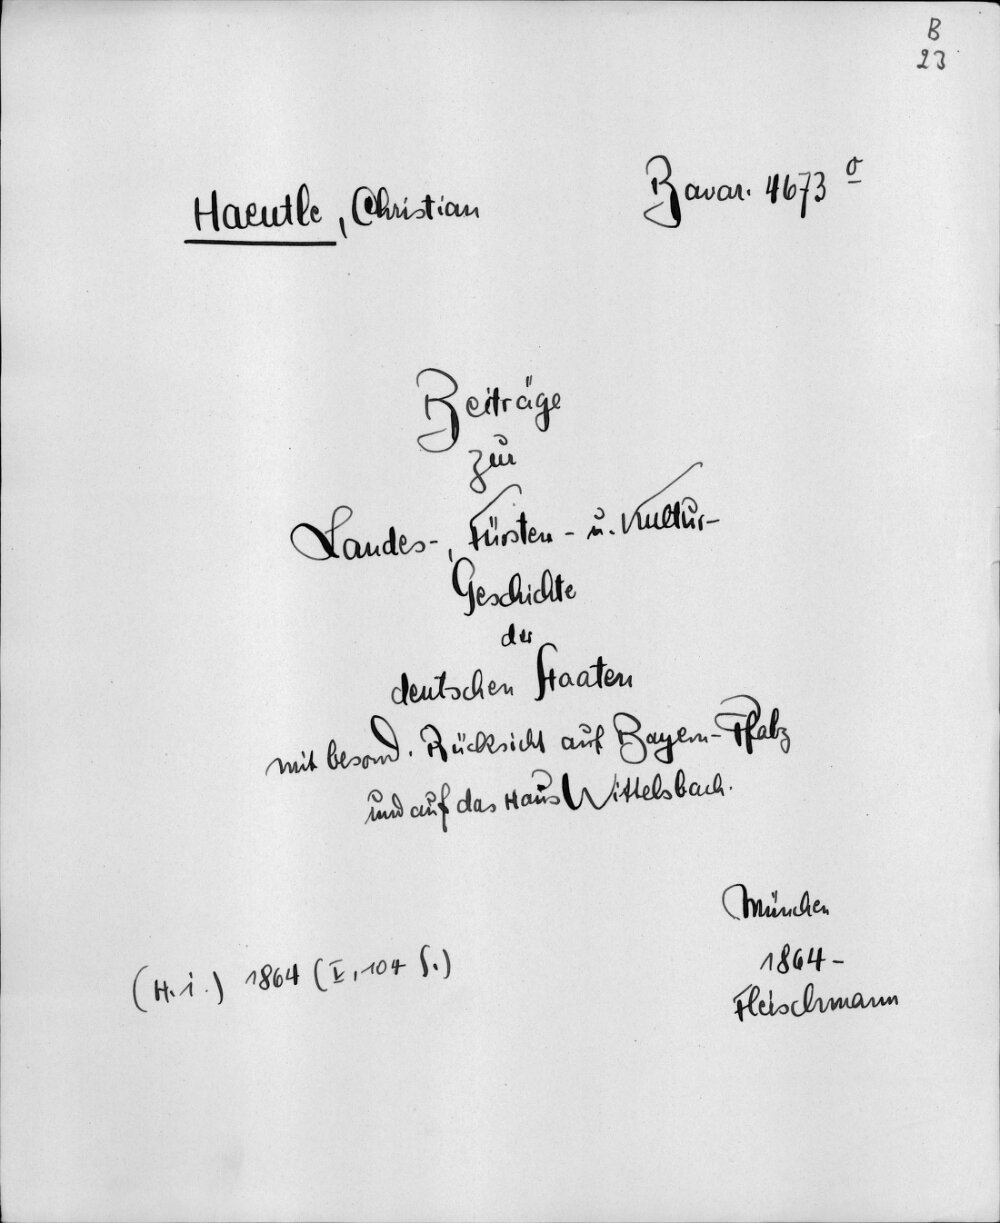 B
23
Haeutle, Christian
Bavar. 4673 o
Beiträge
zur
Landes-, Fürsten- u. Kultur-
Geschichte
der
deutschen Staaten
mit besond. Rücksicht auf Bayern-Pfalz
und auf das Haus Wittelsbach.
München
1864-
Fleischmann
(H. i.) 1864 (V, 104 S.)